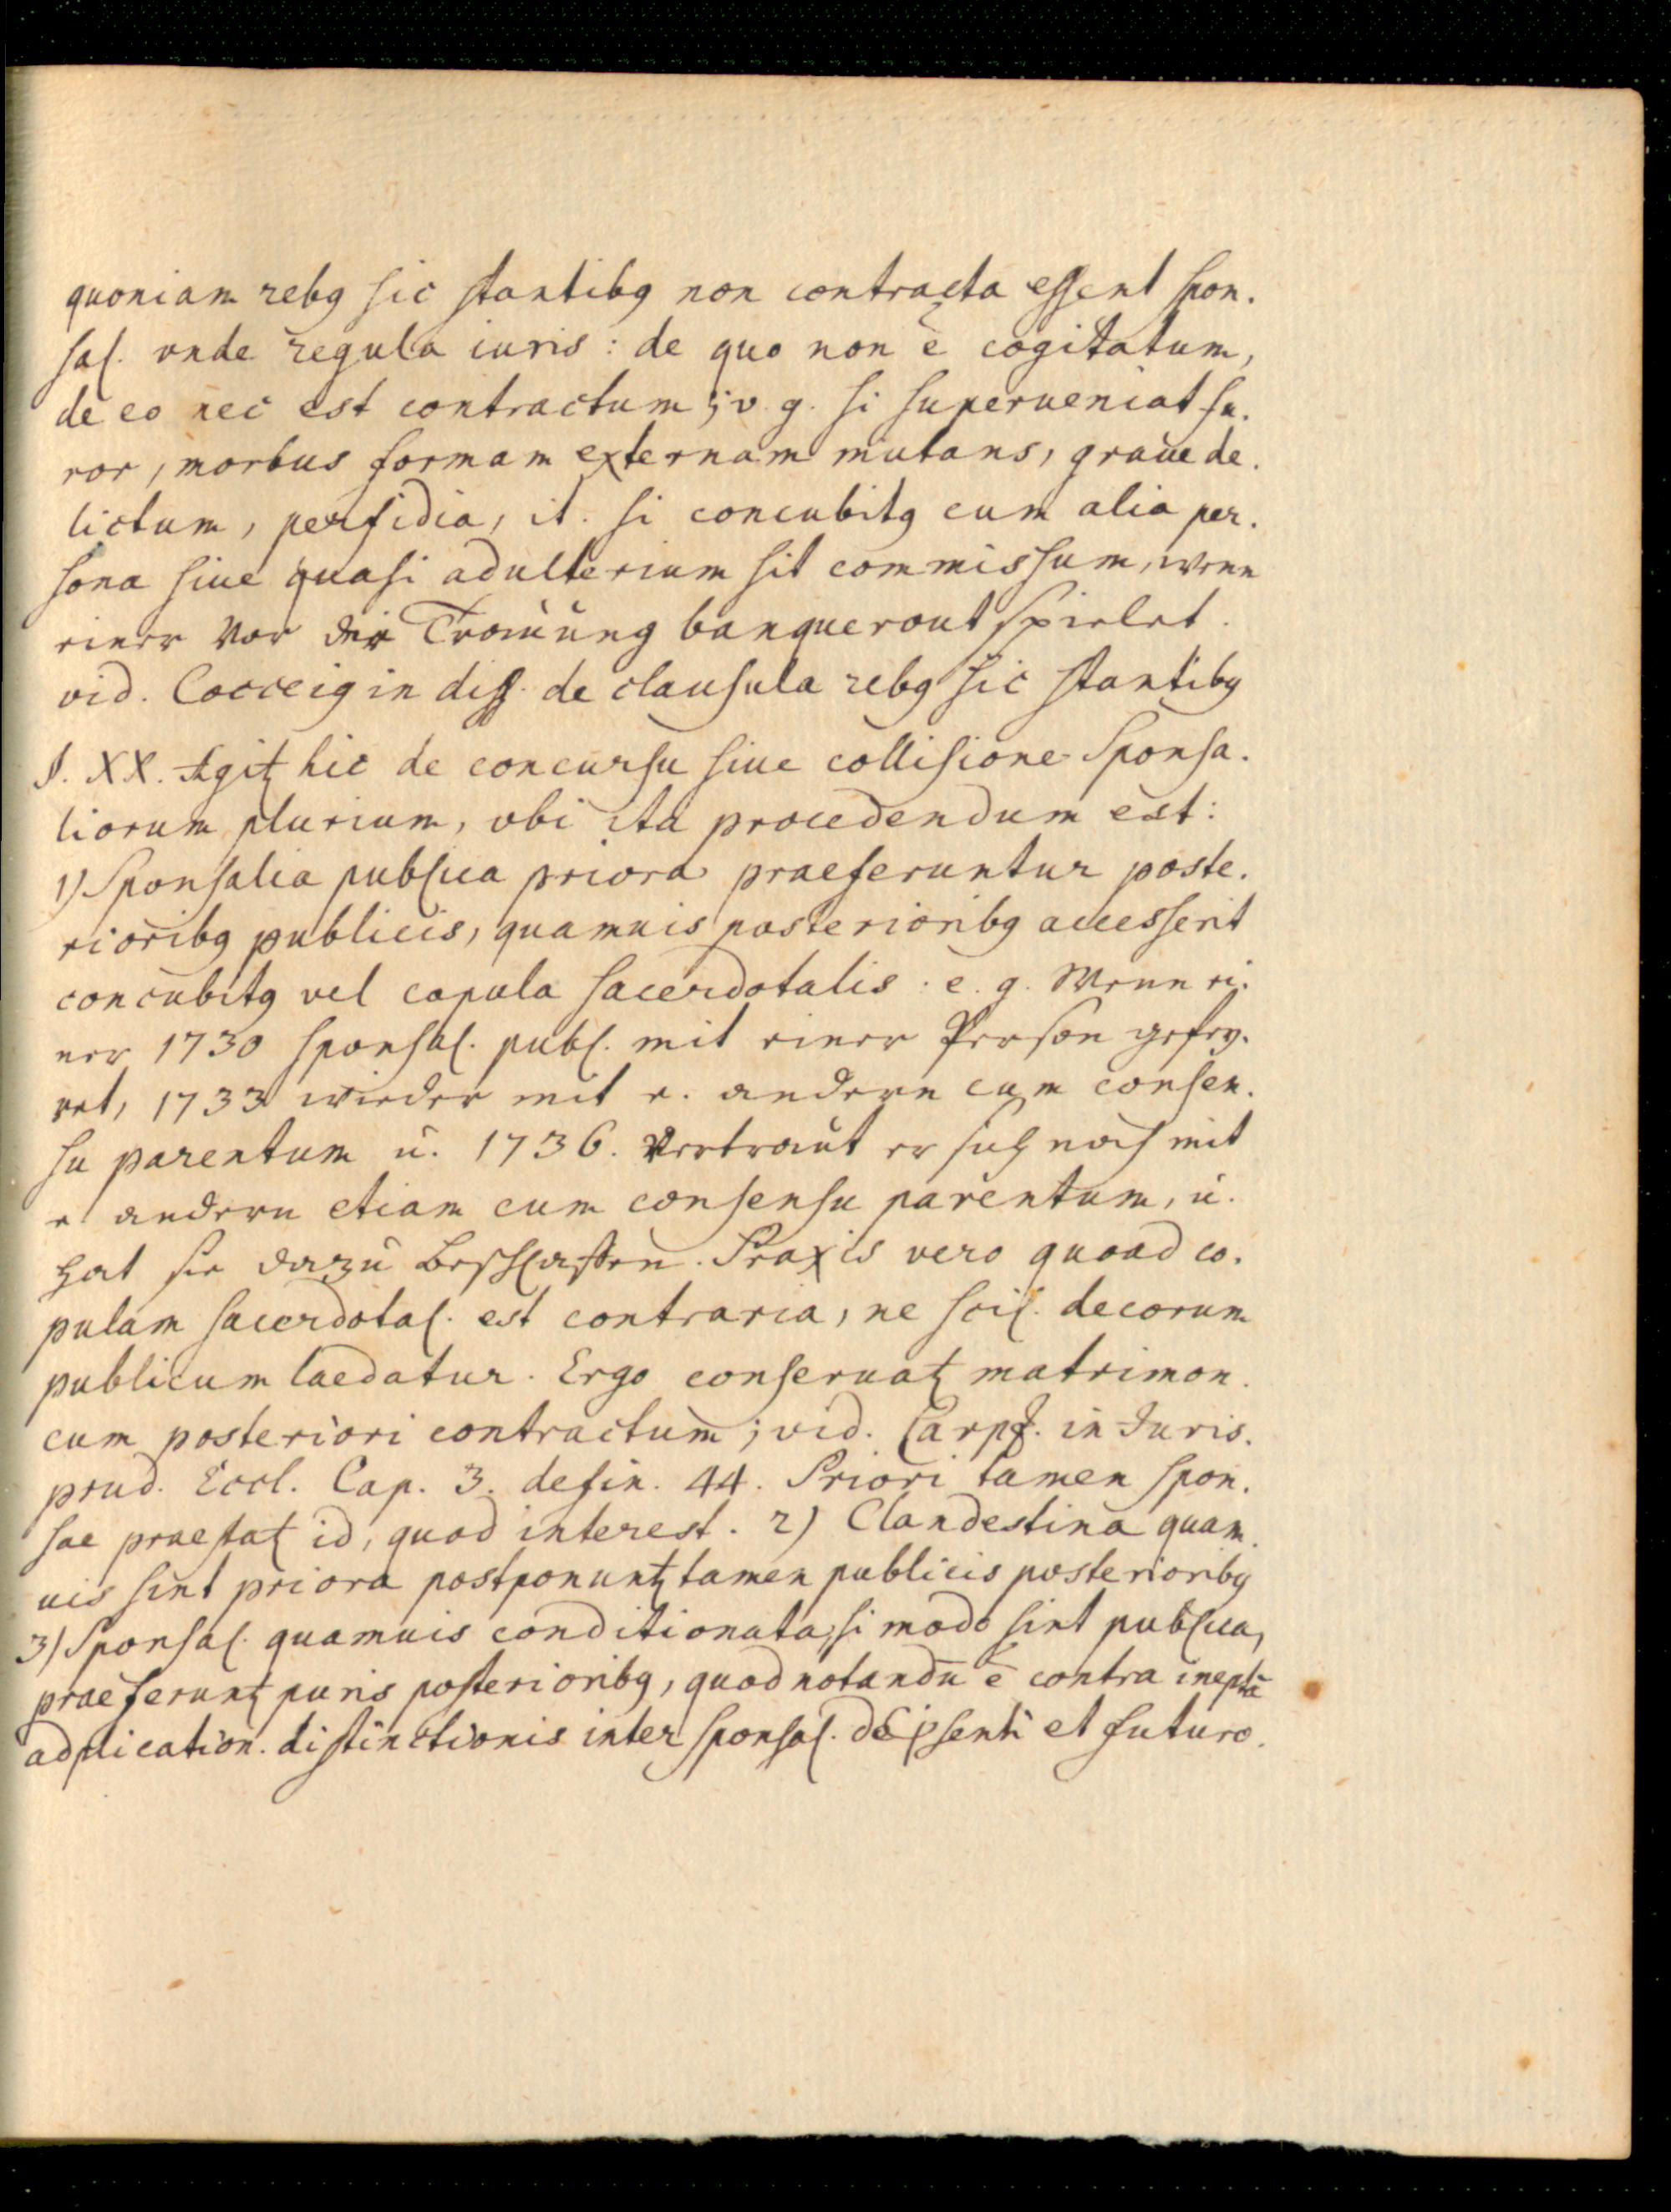 quoniam rebq sic stantibq non contracta essent spon.
sal. vnde regula iuris: de quo non ē cogitatum,
de eo nec est contractum; v. g. si superueniat fu.
ror, morbus formam externam mutans, graue de.
lictum, perfidia, it. si concubitq cum alia per.
sona siue quasi adulterium sit commissum, wenn
einer vor der Trauung banquerout spielet.
vid. Cocceiq in diss. de clausula rebq sic stantibq
§. XX. Agitɋ hic de concursu siue collisione Sponsa.
liorum plurium, vbi ita procedendum est:
1) Sponsalia publica priora praeferuntur poste.
rioribq publicis, quamuis posterioribq accesserit
concubitq vel copula sacerdotalis: e. g. Wenn ei.
ner 1730 sponsal. publ. mit einer Person gefey.
ret, 1733 wieder mit e. andern cum consen.
su parentum u. 1736. vertraut er sich noch mit
e. andern etiam cum consensu parentum, u.
hat sie dazu beschlaffen. Praxis vero quoad co.
pulam sacerdotal. est contraria, ne scil. decorum
publicum laedatur. Ergo conseruatɋ matrimon.
cum posteriori contractum; vid. Carpz. in Juris.
prud. Eccl. Cap. 3. defin. 44. Priori tamen spon.
sae praestatɋ id, quod interest. 2) Clandestina quam
uis sint priora postponuntɋ tamen publicis posterioribq
3) Sponsal. quamuis conditionata, si modo sint publica,
praeferuntɋ puris posterioribq, quod notandū ē contra ineptā
adplication. distinctionis inter sponsal. de psenti et futuro.